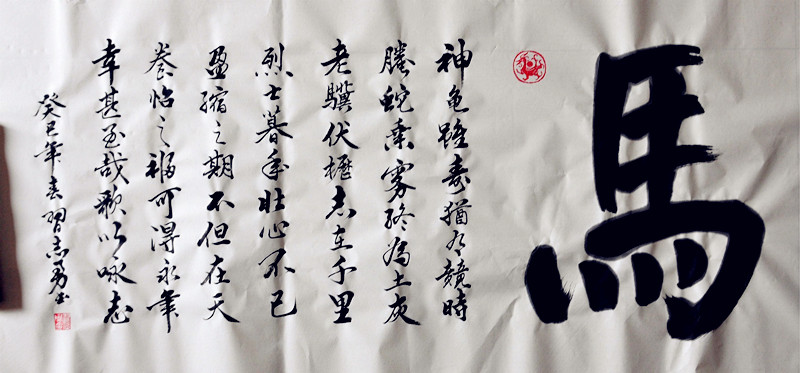 馬
神龜雖壽猶有競時
騰蛇乘霧終為土灰
老驥伏櫪志在千里
烈士暮年壯心不已
盈縮之期不但在天
養怡之福可得永年
幸甚至哉歌以咏志
癸巳年春習志勇书